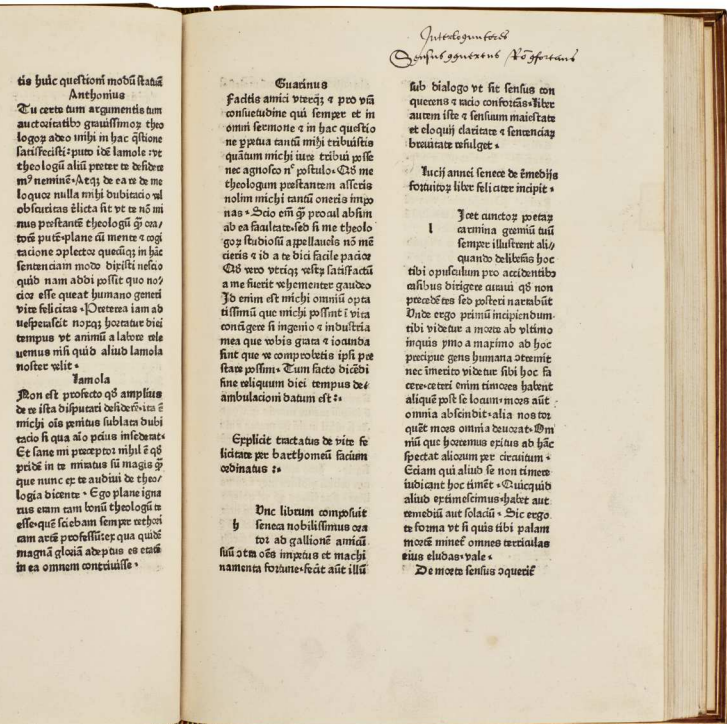 tis huic questioni modū statuā
Anthonius
Tu certe tum argumentis tum
auctoritatibꝰ grauissimoꝝ theo
logoꝝ adeo mihi in hac q̄stione
satisfecisti: puto idē lamole: vt
theologū aliū preter te desidere
mꝰ neminē. Atqꝫ de ea re de me
loquor nulla mihi dubitacio vel
obscuritas
nus prestantē theologū
torē putē. plane cū mente ⁊ cogi
tacione ɔplector quecūqꝫ in hac
sentenciam modo dixisti nescio
quid nam addi possit quo no/
cior esse queat humano generi
vite felicitas. Preterea iam ad
uesperascit noxqꝫ hortatur diei
tempus vt animū a labore rele
uemus nisi quid aliud lamola
noster velit.
Lamola
Non est profecto qð amplius
de re ista disputari desiderē. ita ē
michi oīs penitus sublata dubi
tacio si qua aīo prius insederat.
Et sane mi preceptor nihil ē qð
pridē in te miratus sū magis q̄
que nunc ex te audiui de theo/
logia dicente. Ego plane igna
rus eram tam bonū theologū te
esse. quē sciebam semper rethori
cam artē professū. ex qua quidē
magnā gloriā adeptus es etatē
in ea omnem contriuisse.
Guarinus
Facitis amici vterqꝫ ⁊ pro vr̄a
consuetudine qui semper et in
omni sermone ⁊ in hac questio
ne ꝑpetua tantū mihi tribuistis
quātum michi iure tribui posse
nec agnosco nec postulo. Qð me
theologum prestantem asseris
nolim michi tantū oneris impo
nas. Scio eni q̄ procul absim
ab ea facultate. sed si me theolo
goꝝ studiosū appellaueris nō mē
cieris ⁊ id a te dici facile pacior
Qð vero vtriqꝫ vestꝝ satisfactū
a me fuerit vehementer gaudeo
Id enim est michi omniū opta
tissimū que michi possint ī vita
contīgere si ingenio ⁊ industria
mea que vobis grata ⁊ iocunda
sint que vt comprobetis ipsi pre
stare possim. Tum facto dicēdi
fine reliquum diei tempus de/
ambulacioni datum est:.
Explicit tractatus de vite fe
licitate per bartholomeū facium
ordinatus:.
Vnc librum composuit
h seneca nobilissimus ora
tor ad gallionē amicū
suū ɔtra oēs impetus et machi
namenta fortune. fecit aūt illū
Interloquutores
Sensus
sub dialogo vt sit sensus con
querens ⁊ racio confortās. liber
autem iste ⁊ sensuum maiestate
et eloquij claritate ⁊ sentenciaꝝ
breuitate refulget.
Lucij annei senece de remedijs
fortuitoꝝ liber feliciter incipit.
Icet cunctoꝝ poetaꝝ
l carmina gremiū tuū
semper illustrent ali/
quando deliberās hoc
tibi opusculum pro accidentibꝰ
casibus dirigere curaui qð non
precedētes sed posteri narrabūt
Vnde ergo primū incipiendum.
tibi videtur a morte ab vltimo
inquis ymo a maximo ab hoc
precipue gens humana ɔtremit
nec īmerito videtur sibi hoc fa
cere. ceteri enim timores habent
aliquē post se locum. mors aūt
omnia abscindit. alia nos tor
quēt mors omnia deuorat. Om
niū que horremus exitus ad hāc
spectat aliorum per circuitum.
Eciam qui aliud se non timere
iudicant hoc timēt. Quicquid
aliud extimescimus. habet aut
remediū aut solaciū. Sic ergo
te forma vt si quis tibi palam
mortē minetur omnes terriculas
eius eludas. vale.
De morte sensus ɔquerit̄